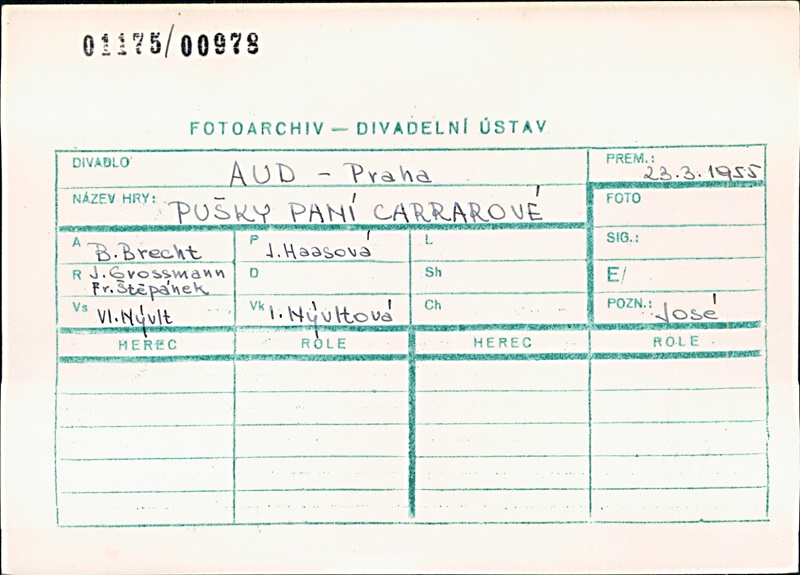 01175/00978
FOTOARCHIV — DIVADELNÍ ÚSTAV
DIVADLO AUD - Praha PREM.: 23.3.1955
NÁZEV HRY: PUŠKY PANÍ CARRAROVÉ FOTO
A B. Brecht P J. Haasová L SIG.:
R J. Grossmann D Sh E/
Fr. Štěpánek
Vs Vl. Nývlt Vk I. Nývltová Ch POZN.: José
HEREC ROLE HEREC ROLE